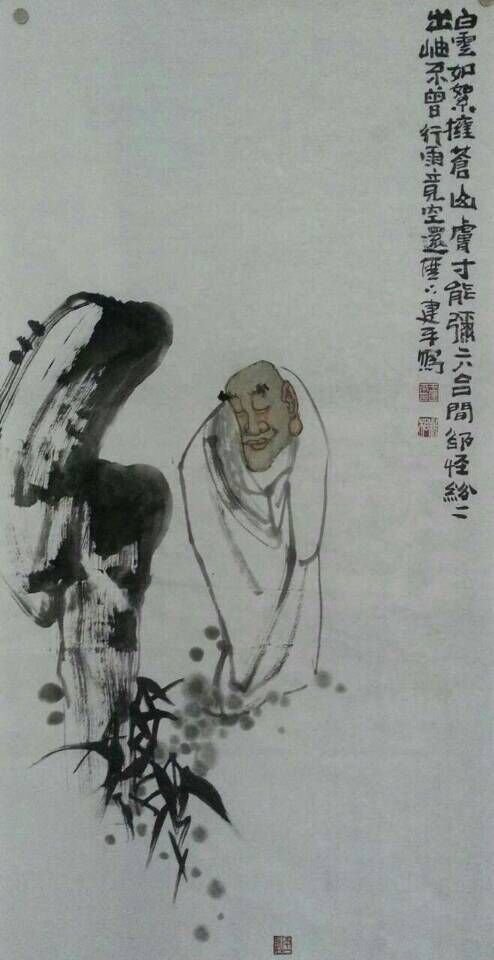 白雲如絮擁蒼山膚寸能彌六合間卻怪紛々
出岫不曾行雨竟空還 建平寫